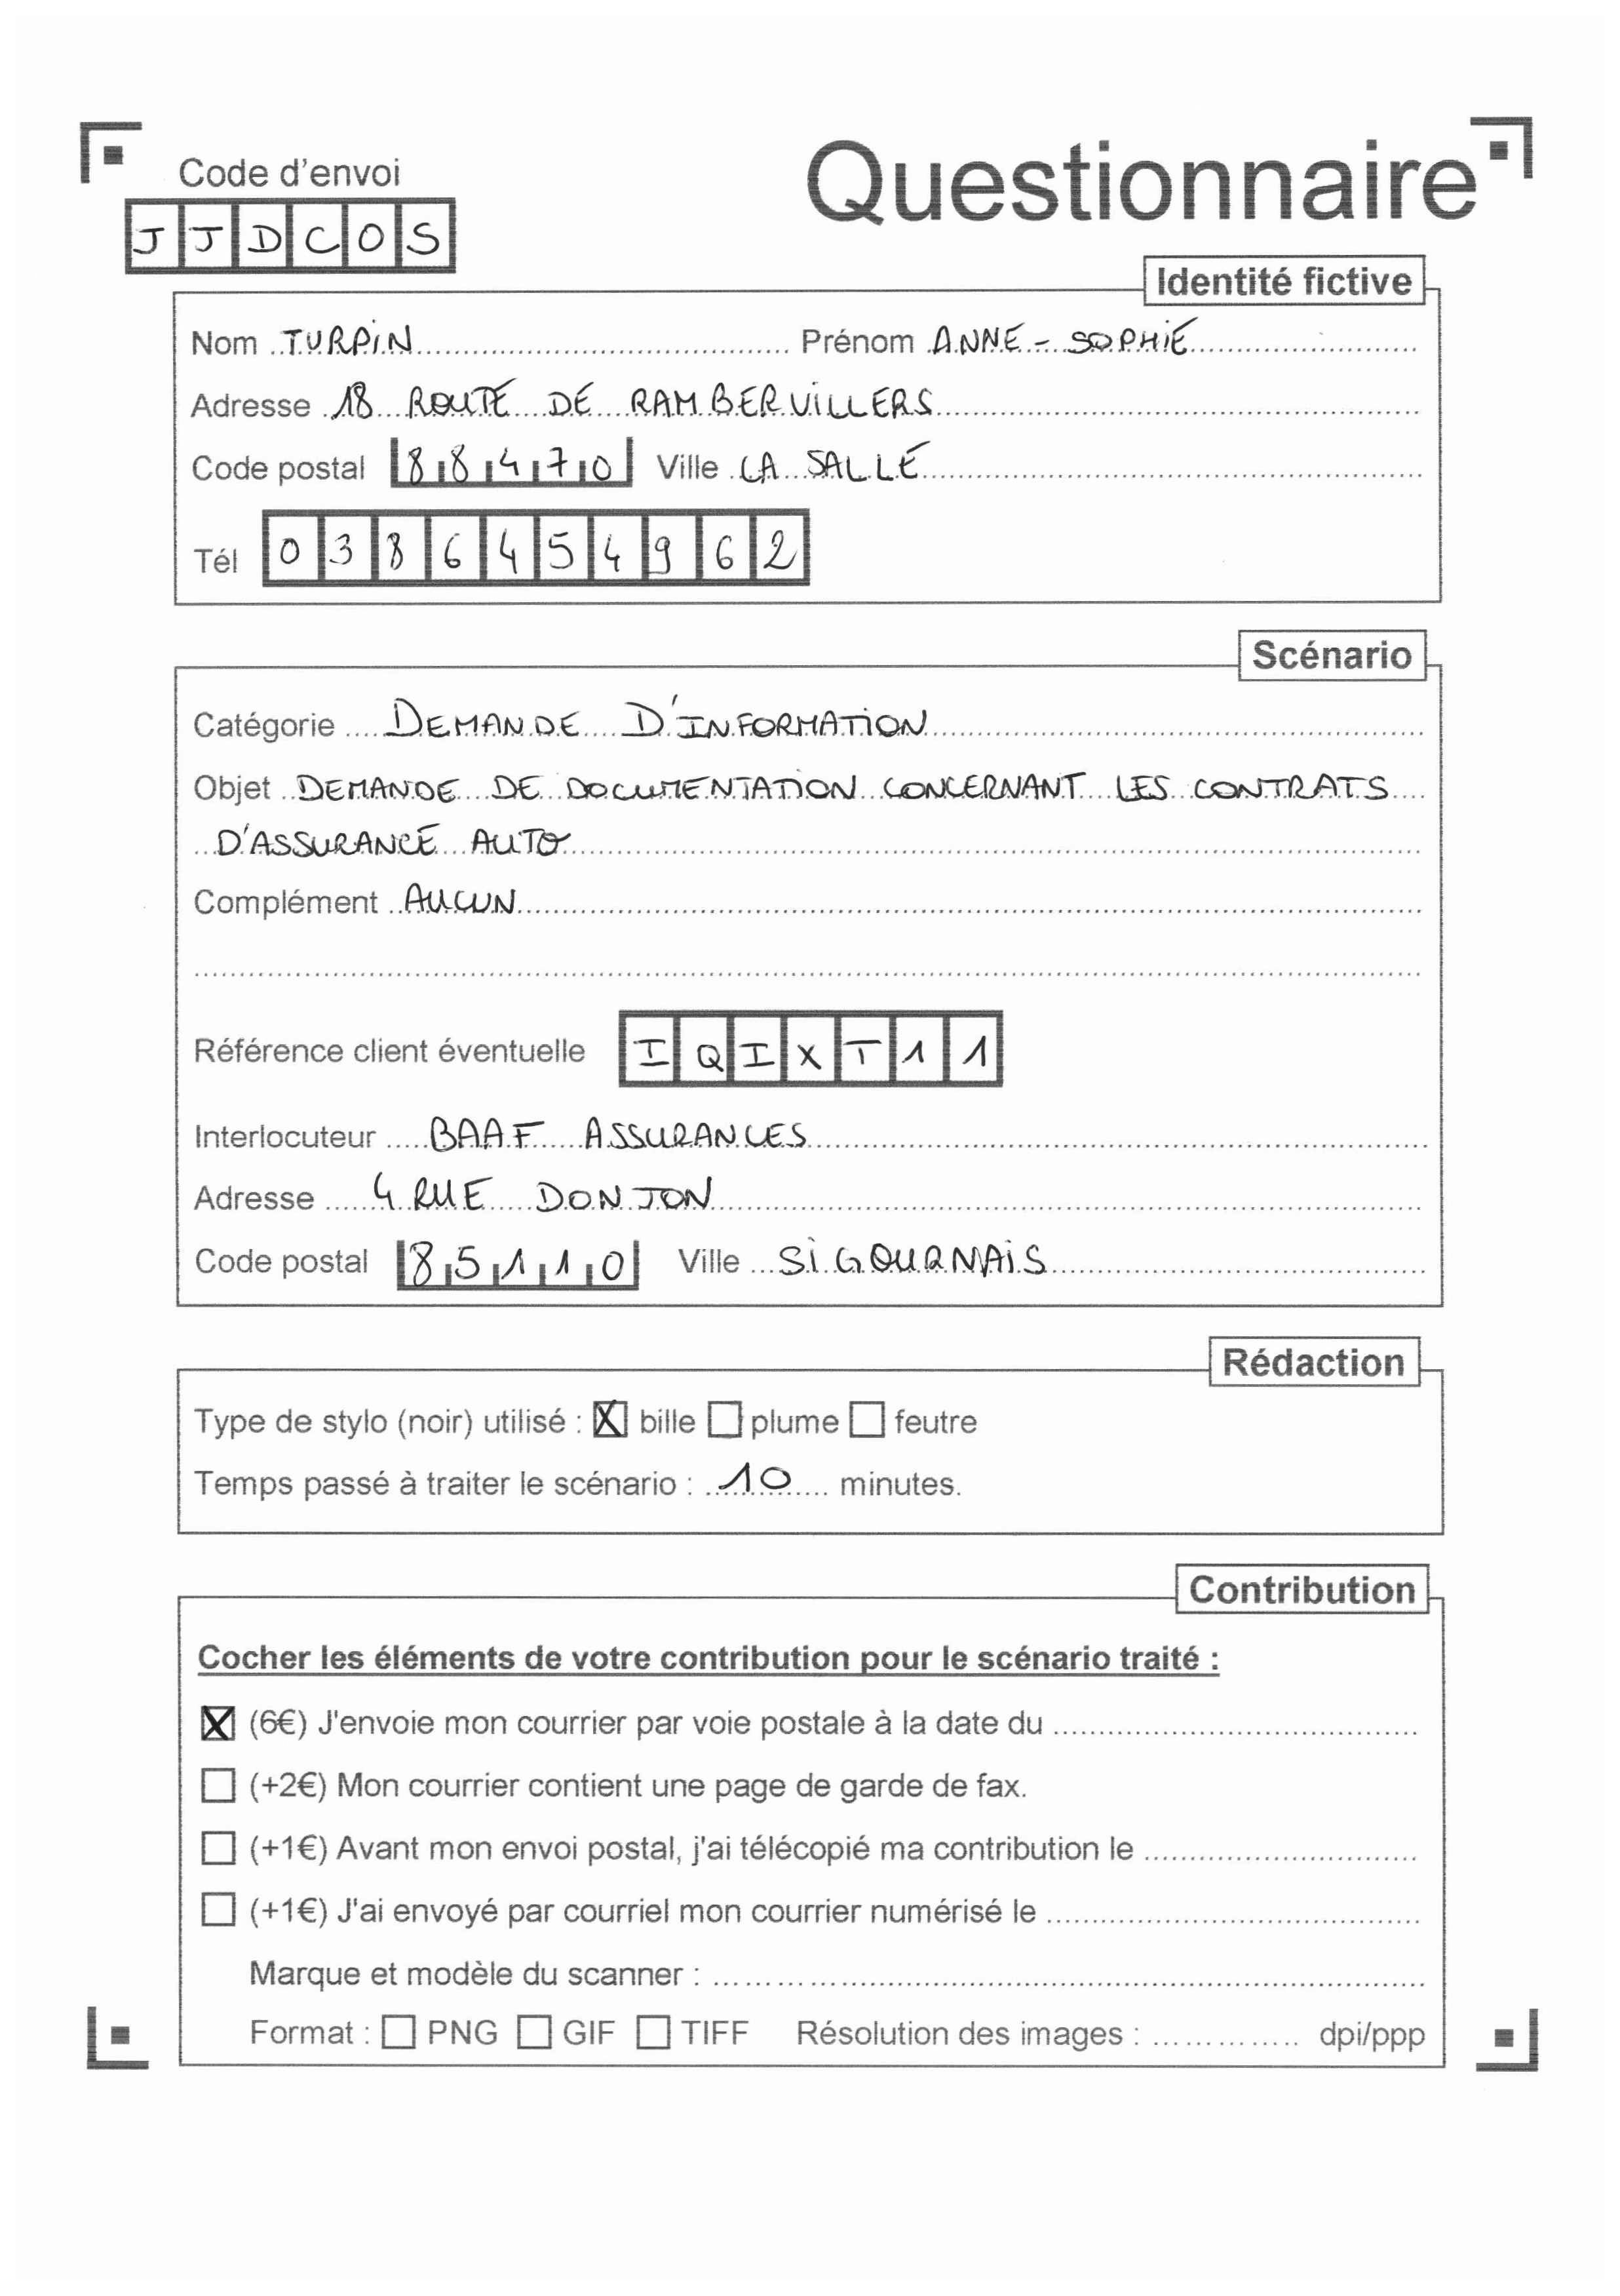 Code d'envoi
JJDCOS
Questionnaire
Identité fictive
Nom TURPIN Prénom ANNE-SOPHIE
Adresse 18 ROUTE DE RAMBERVILLERS
Code postal 88470 Ville LA SALLE
Tél 0386454962
Scénario
Catégorie DEMANDE D'INFORMATION
Objet DEMANDE DE DOCUMENTATION CONCERNANT LES CONTRATS
D'ASSURANCE AUTO
Complément AUCUN
Référence client éventuelle IQIXT11
Interlocuteur BAAF ASSURANCES
Adresse 4 RUE DONJON
Code postal 85110 Ville SIGOURNAIS
Rédaction
Type de stylo (noir) utilisé : ☒ bille ☐ plume ☐ feutre
Temps passé à traiter le scénario : 10 minutes.
Contribution
Cocher les éléments de votre contribution pour le scénario traité :
☒ (6€) J'envoie mon courrier par voie postale à la date du
☐ (+2€) Mon courrier contient une page de garde de fax.
☐ (+1€) Avant mon envoi postal, j'ai télécopié ma contribution le
☐ (+1€) J'ai envoyé par courriel mon courrier numérisé le
Marque et modèle du scanner :
Format : ☐ PNG ☐ GIF ☐ TIFF Résolution des images : dpi/ppp